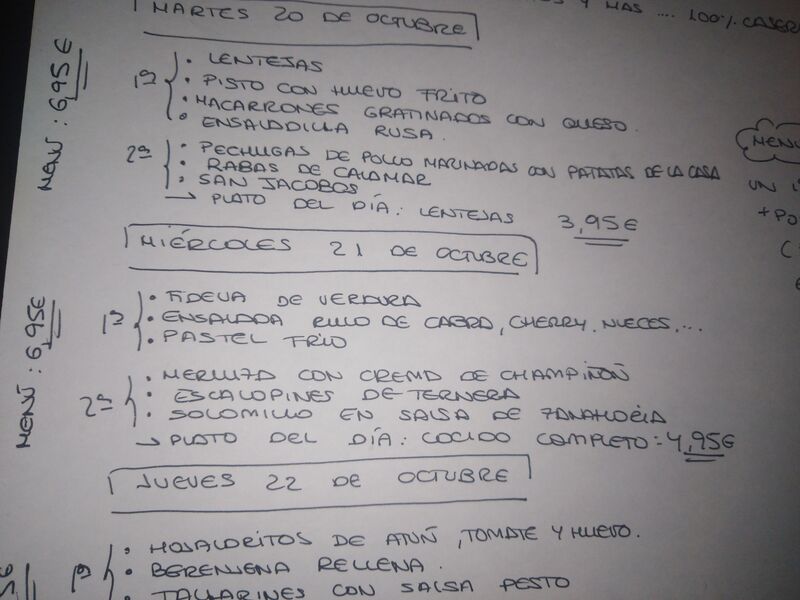 Y MAS .... 100% CASER
MARTES 20 DE OCTUBRE
MENÚ: 6,95€
1º
· LENTEJAS
· PISTO CON HUEVO FRITO
· MACARRONES GRATINADOS CON QUESO.
· ENSALADILLA RUSA.
2º
· PECHUGAS DE POLLO MARINADAS CON PATATAS DE LA CASA
· RABAS DE CALAMAR
· SAN JACOBOS
→ PLATO DEL DÍA: LENTEJAS 3,95€
MENÚ
UN
+ PO
MIÉRCOLES 21 DE OCTUBRE
MENÚ: 6,95€
1º
· FIDEUA DE VERDURA
· ENSALADA RULO DE CABRA, CHERRY, NUECES,...
· PASTEL FRIO
2º
· MERLUZA CON CREMA DE CHAMPIÑÓÑ
· ESCALOPINES DE TERNERA
· SOLOMILLO EN SALSA DE ZANAHORIA
→ PLATO DEL DÍA: COCIDO COMPLETO = 4,95€
JUEVES 22 DE OCTUBRE
1º
· HOJALDRITOS DE ATÚÑ, TOMATE Y HUEVO.
· BERENJENA RELLENA.
· TALLARINES CON SALSA PESTO